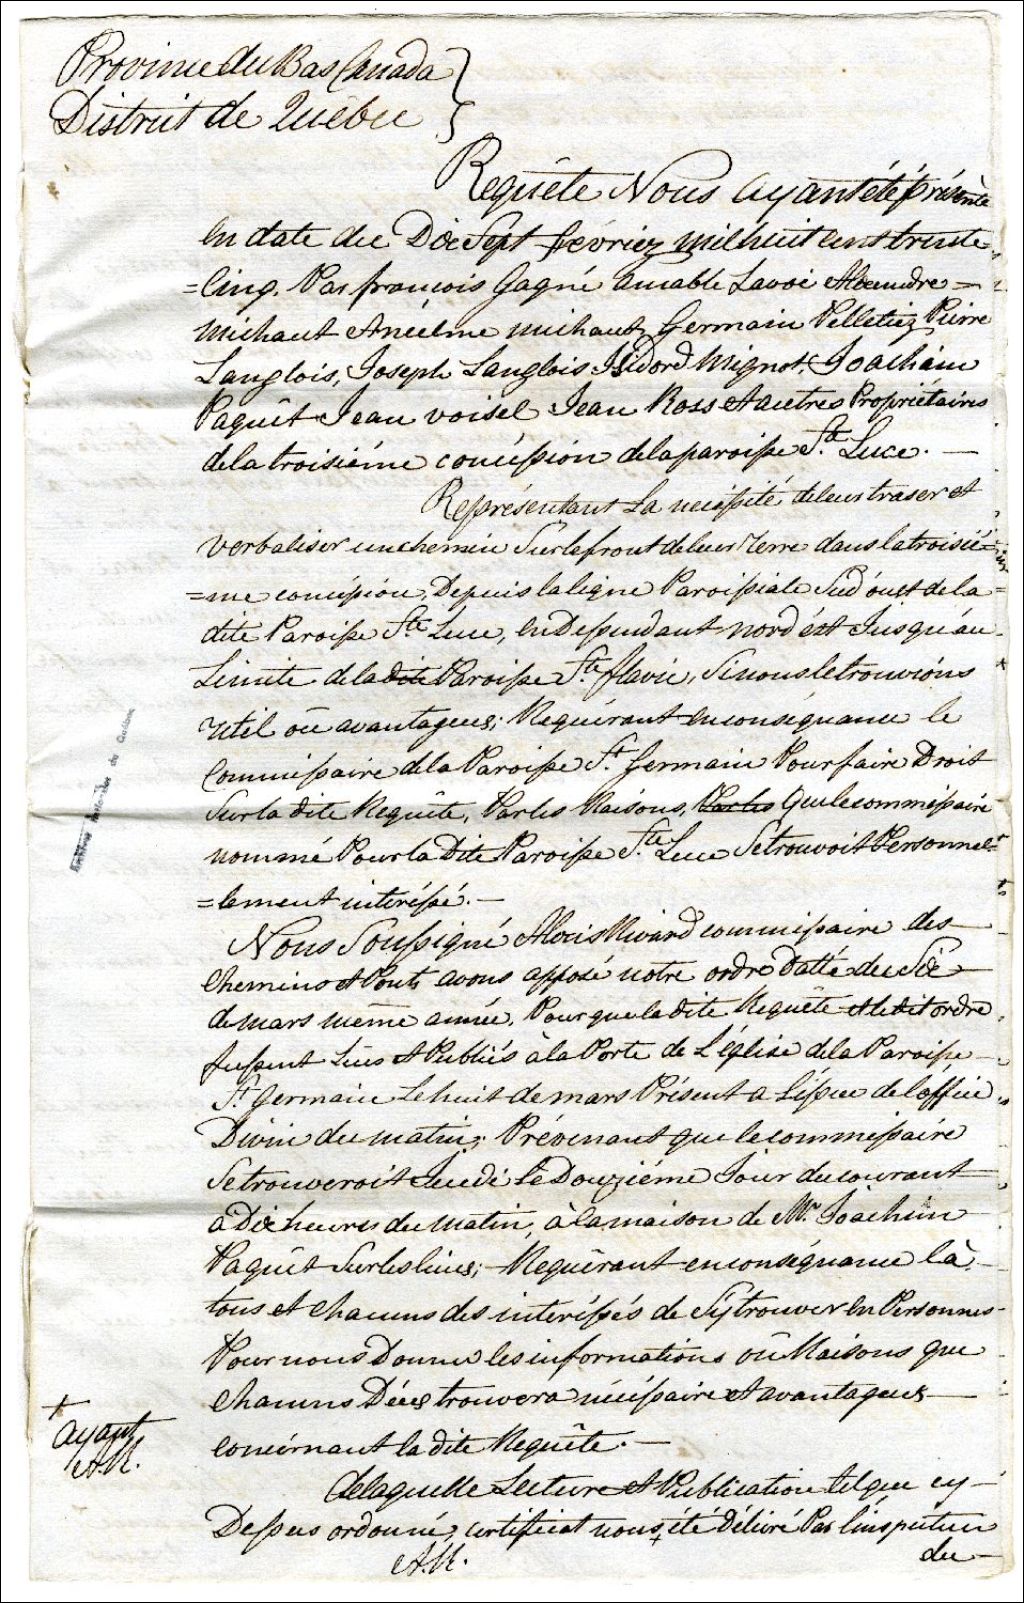 Province du Bas Canada
District de Québec
Requête Nous ayant été présenté
En date du Dix Sept fevriez mil huit cent trente
=Cinq. Par francois Gagné amable Lavoi Alexandre=
michaut Anselme michaut, Germain Pelletiez Pierre
Langlois, Joseph Langlois Isidord Mignot, Joachim
Paquêt Jean voisel Jean Ross et autres Propriétaires
de la troisiéme concéssion de la paroisse Ste Luce. —
Représentant La necéssité de leur traser et
verbaliser un chemin Sur le front de leur Terre dans la troisié=
=me concéssion, Depuis la ligne Paroissiale Sud óuest de la
dite Paroisse Ste Luce, en Dessendant nord ést Jusqu'au
Limite de la dite Paroisse Ste flavie, Si nous le trouvions
Util oû avantageus; Requérant en conséquance le
Commissaire de la Paroisse St Germain Pour faire Droit
Sur la dite Requête, Par les Raisons, Par les Que le commissaire
nommé Pour la Dite Paroisse Ste Luce Se trouvoit Personnel=
=lement intéréssé. —
Nous Soussigné Alexis Rivard commissaire des
Chemins et Ponts avons apposé notre ordre Datté du Six
de mars même année, Pour que la dite Requête et le dit ordre
fussent Lûes et Publiés à la Porte de L'église de la Paroisse
St Germain Le huit de mars Présent a L'issue de l'office
Divin du matin; Prévenant que le commissaire
Se trouveroit Jeudi Le Douziéme Jour du courant
à Dix heures du matin, à la maison de Mr Joachim
Paquêt Sur les lieux; Requérant en conséquance là
tous et chacuns des interéssés de S'y trouver en Personnes
Pour nous Donner les informations oû Raisons que
chacuns Déus trouvera nécéssaire et avantageus
concernant la dite Requête. —
+
ayant
A.R.
de laquelle Lecture et Publication tel que cy
Dessus ordonné, certificat nous + été Délivré Par l'inspecteur
A.R.
du —